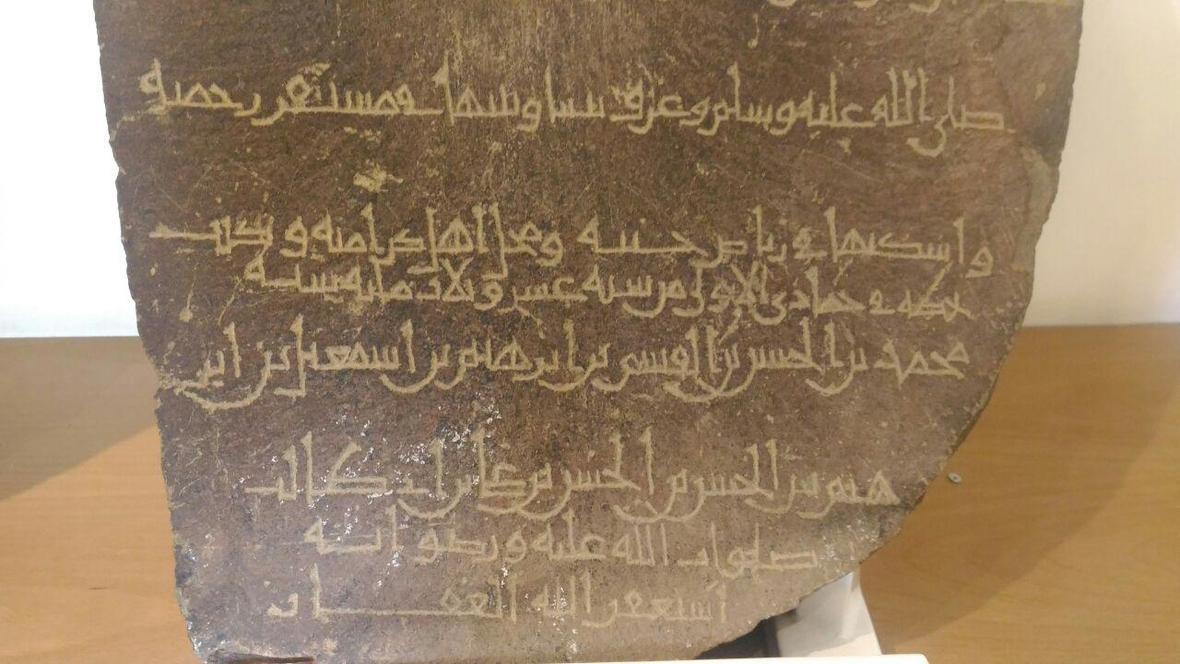 صلى الله عليه وسلم وعرف بينها وبينهما في مستقر رحمته
واسكنها في رياض جنته ومحل اهل كرامته وكتب
بمكة في جمادى الاولى من سنة عشر وثلاث مايه
محمد بن الحسن بن بن ابرهيم بن اسمعيل بن ابر
هيم بن الحسن بن الحسن بن علي بن ابي طالب
صلوات الله عليه ورضوانه
استغفر الله الغفار